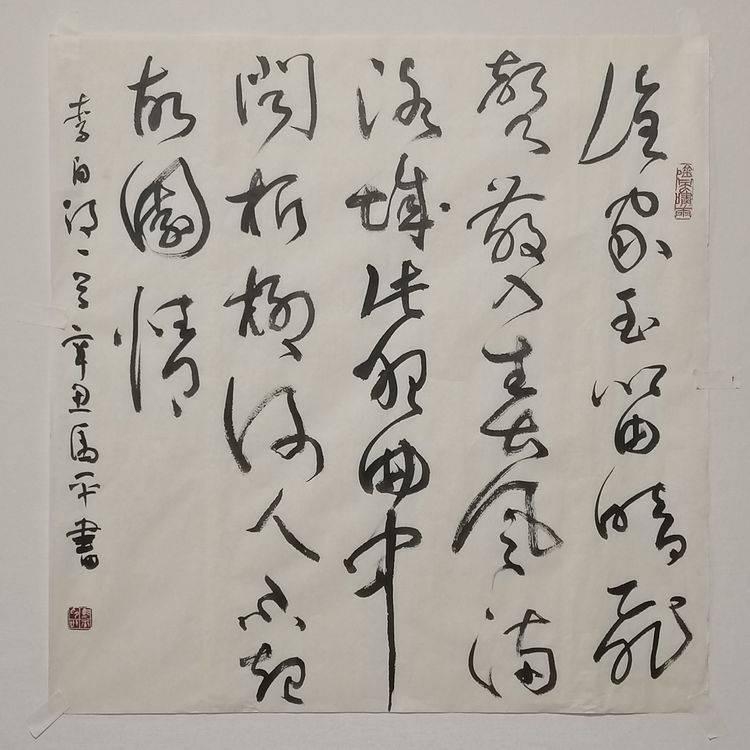 誰家玉笛暗飛
聲散入春風滿
洛城此夜曲中
聞折柳何人不起
故園情
李白詩一首辛丑平書